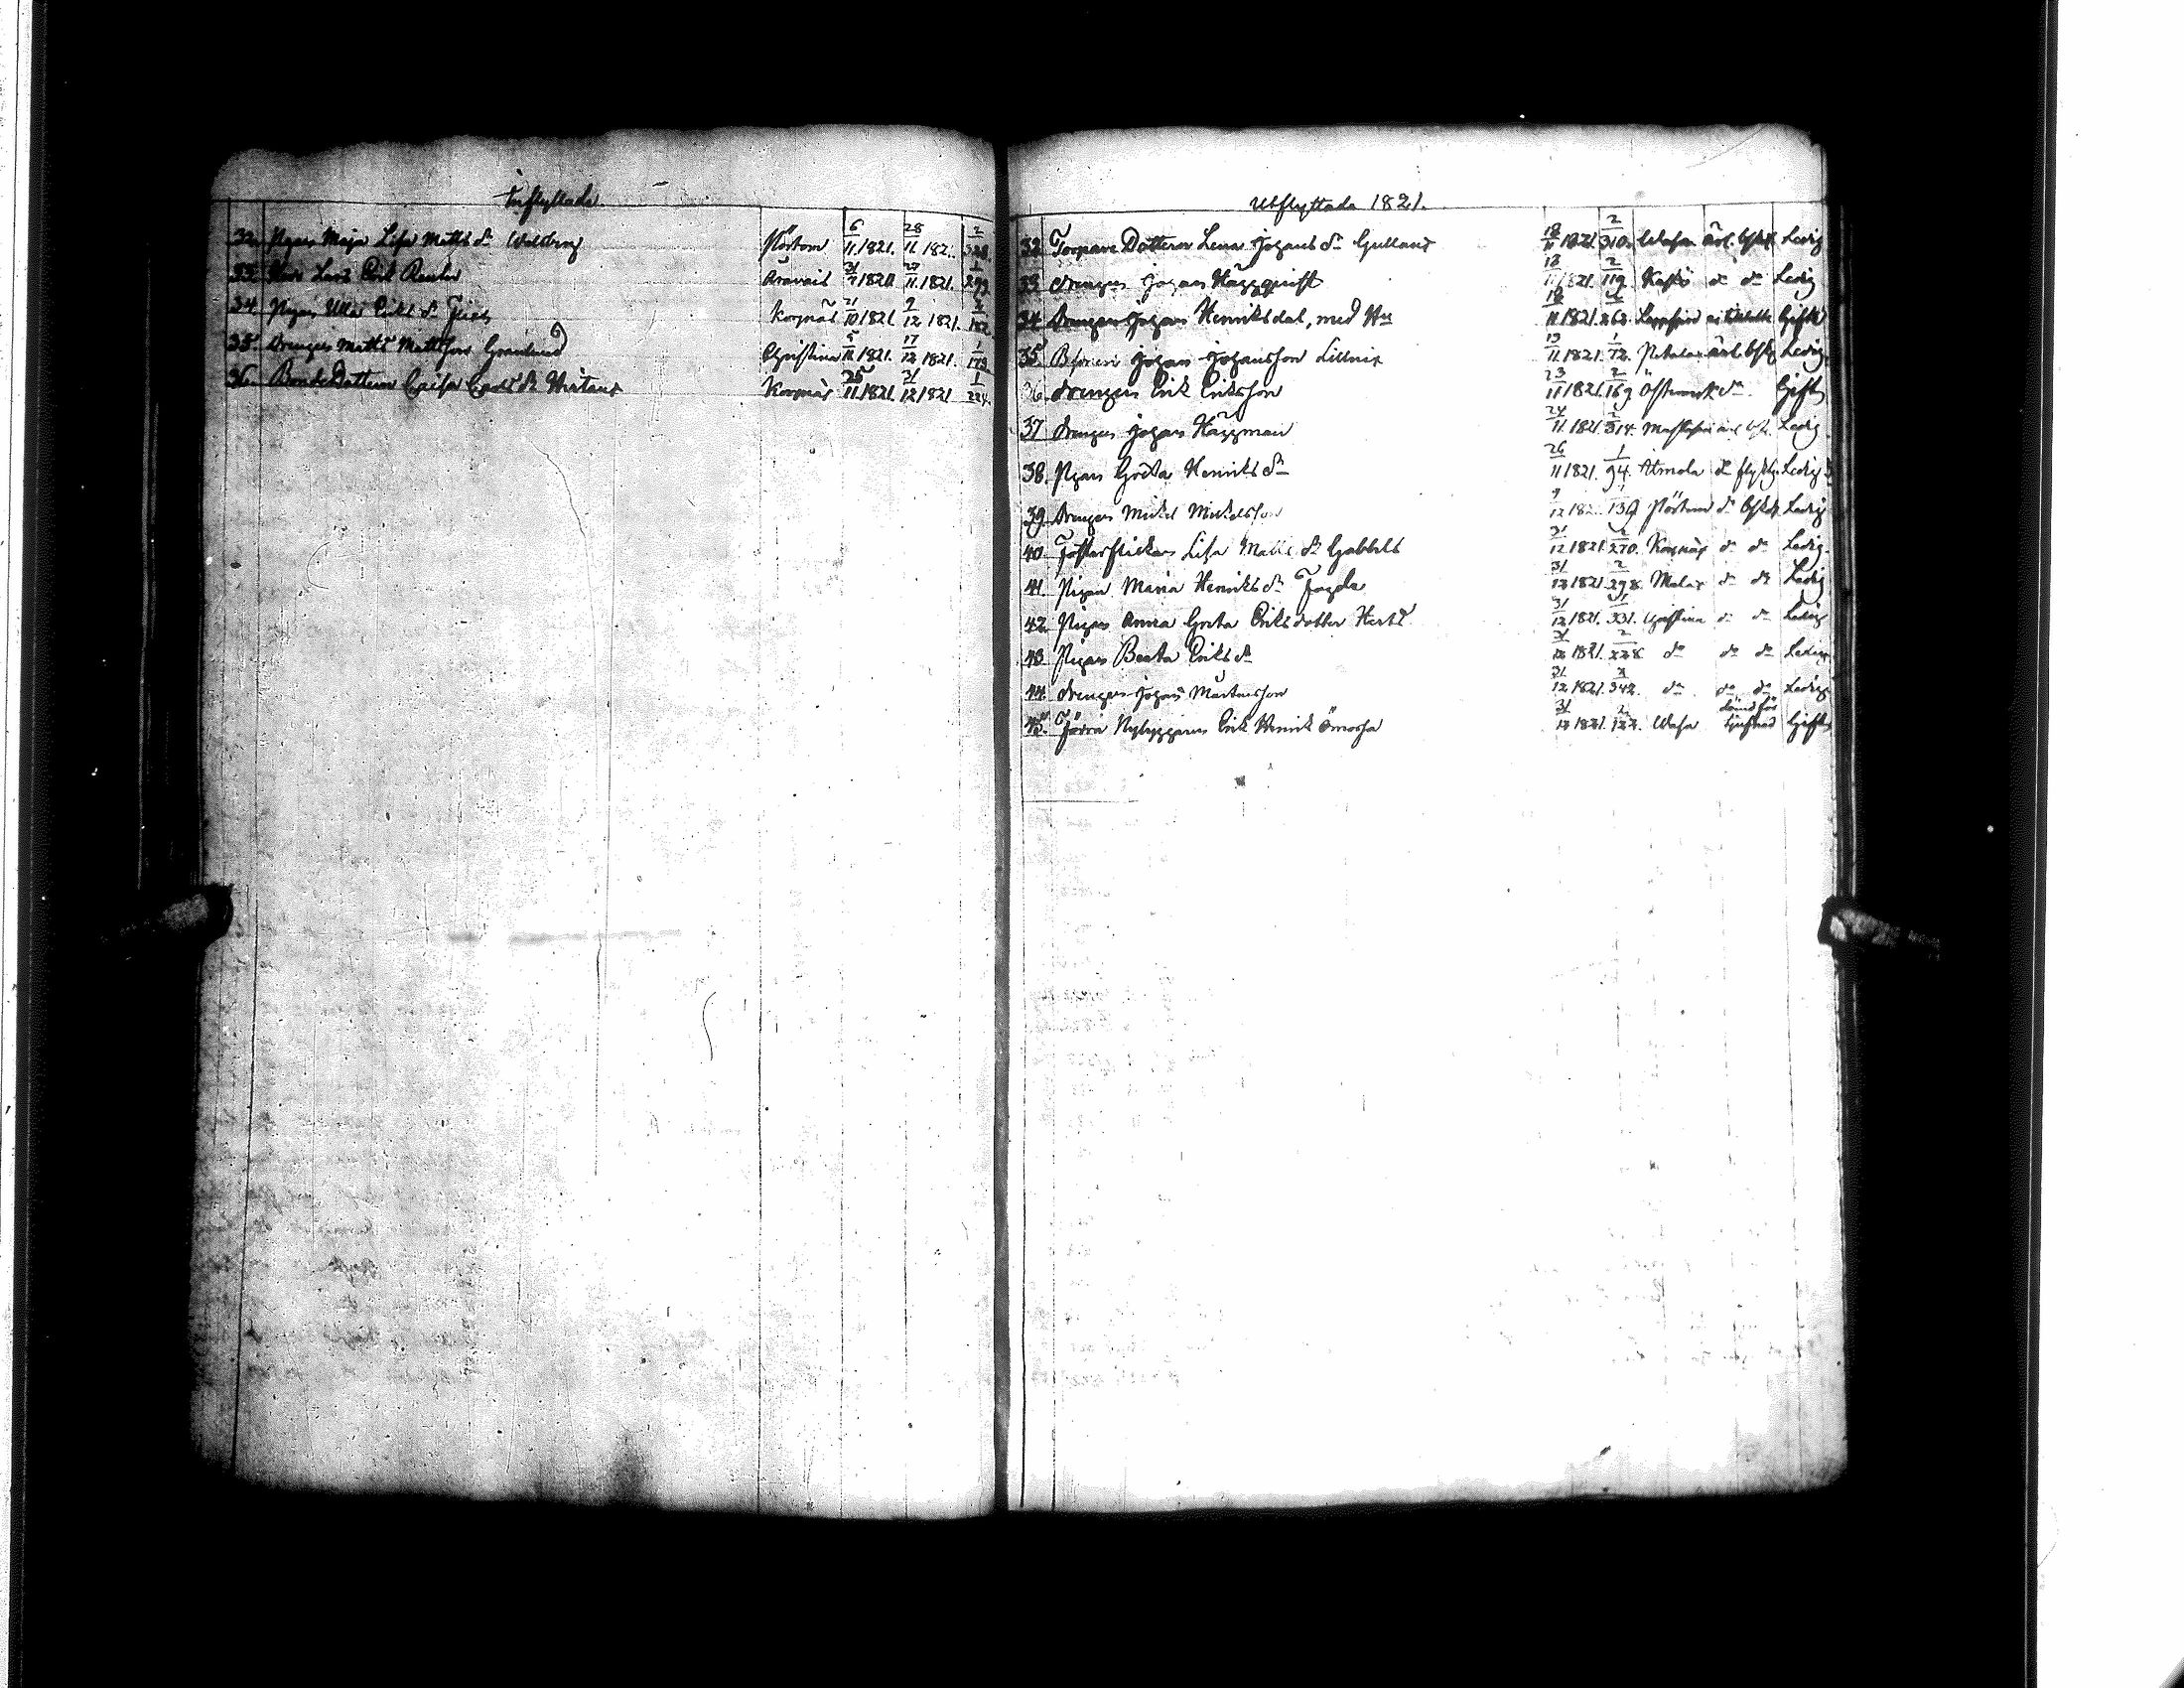 Inflyttade
32. Pigan Maja Lisa Matts dr Wallberg Pörtom 6/11 1821. 28/11 182 2/328
33. Lars Erik Renlund Oravais 31/7 1820 27/11 1821. 1/299
34 Pigan Ulla Eriks dr Korsnäs 21/10 1821. 9/12 1821. 2/182
35. Drengen Matts Mattsson Granlund Christina 5/12 1821. 17/12 1821. 1/173
36. BondeDottern Caisa Carls dr Korsnäs 25/11 1821. 31/12 1821 1/224.
Utflyttade 1821.
32. Torpare Dottern Lena Johans dr Gullans 18/11 1821. 2/310. Wasa ärl. Ledig
33 Drengen Johan Häggqvist 18/11 1821. 2/119. Kaskö do do Ledig
34 Drengen Johan Henriksdal, med Hu 18/11 1821. 268. Lappfjärd Gifte
35 Johan Johansson Lillnix 19/11 1821. 1/72. Petalax ärl. Ledig
36. Drengen Erik Eriksson 23/11 1821. 2/169 Östermark do Gift
37 Drengen Johan Häggman 24/11 1821. 2/314. Ledig
38. Pigan Greta Henriks dr 26/11 1821. 1/94. Ilmola do Ledig
39. Drengen Mickel Mickelsson 9/12 182 139 Pörtom do Ledig
40. Fosterflickan Lisa Matts dr Gabbels 31/12 1821. 2/270. Korsnäs do do Ledig
41. Pigan Maria Henriks dr Fogda 31/12 1821. 2/298. Malax do do Ledig
42. Pigan Anna Greta Eriksdotter Herts 31/12 1821. 331. Christina do do Ledig
43. Pigan Beata Eriks dr 31/12 1821. 2/228 do do do Ledig
44. Drengen Johan Mårtensson 31/12 1821. 2/342. do do do Ledig
45. Förra Nybyggaren Erik Henrik Ömossa 31/12 1821. 2/122. Wasa dömd för tjufnad Gift